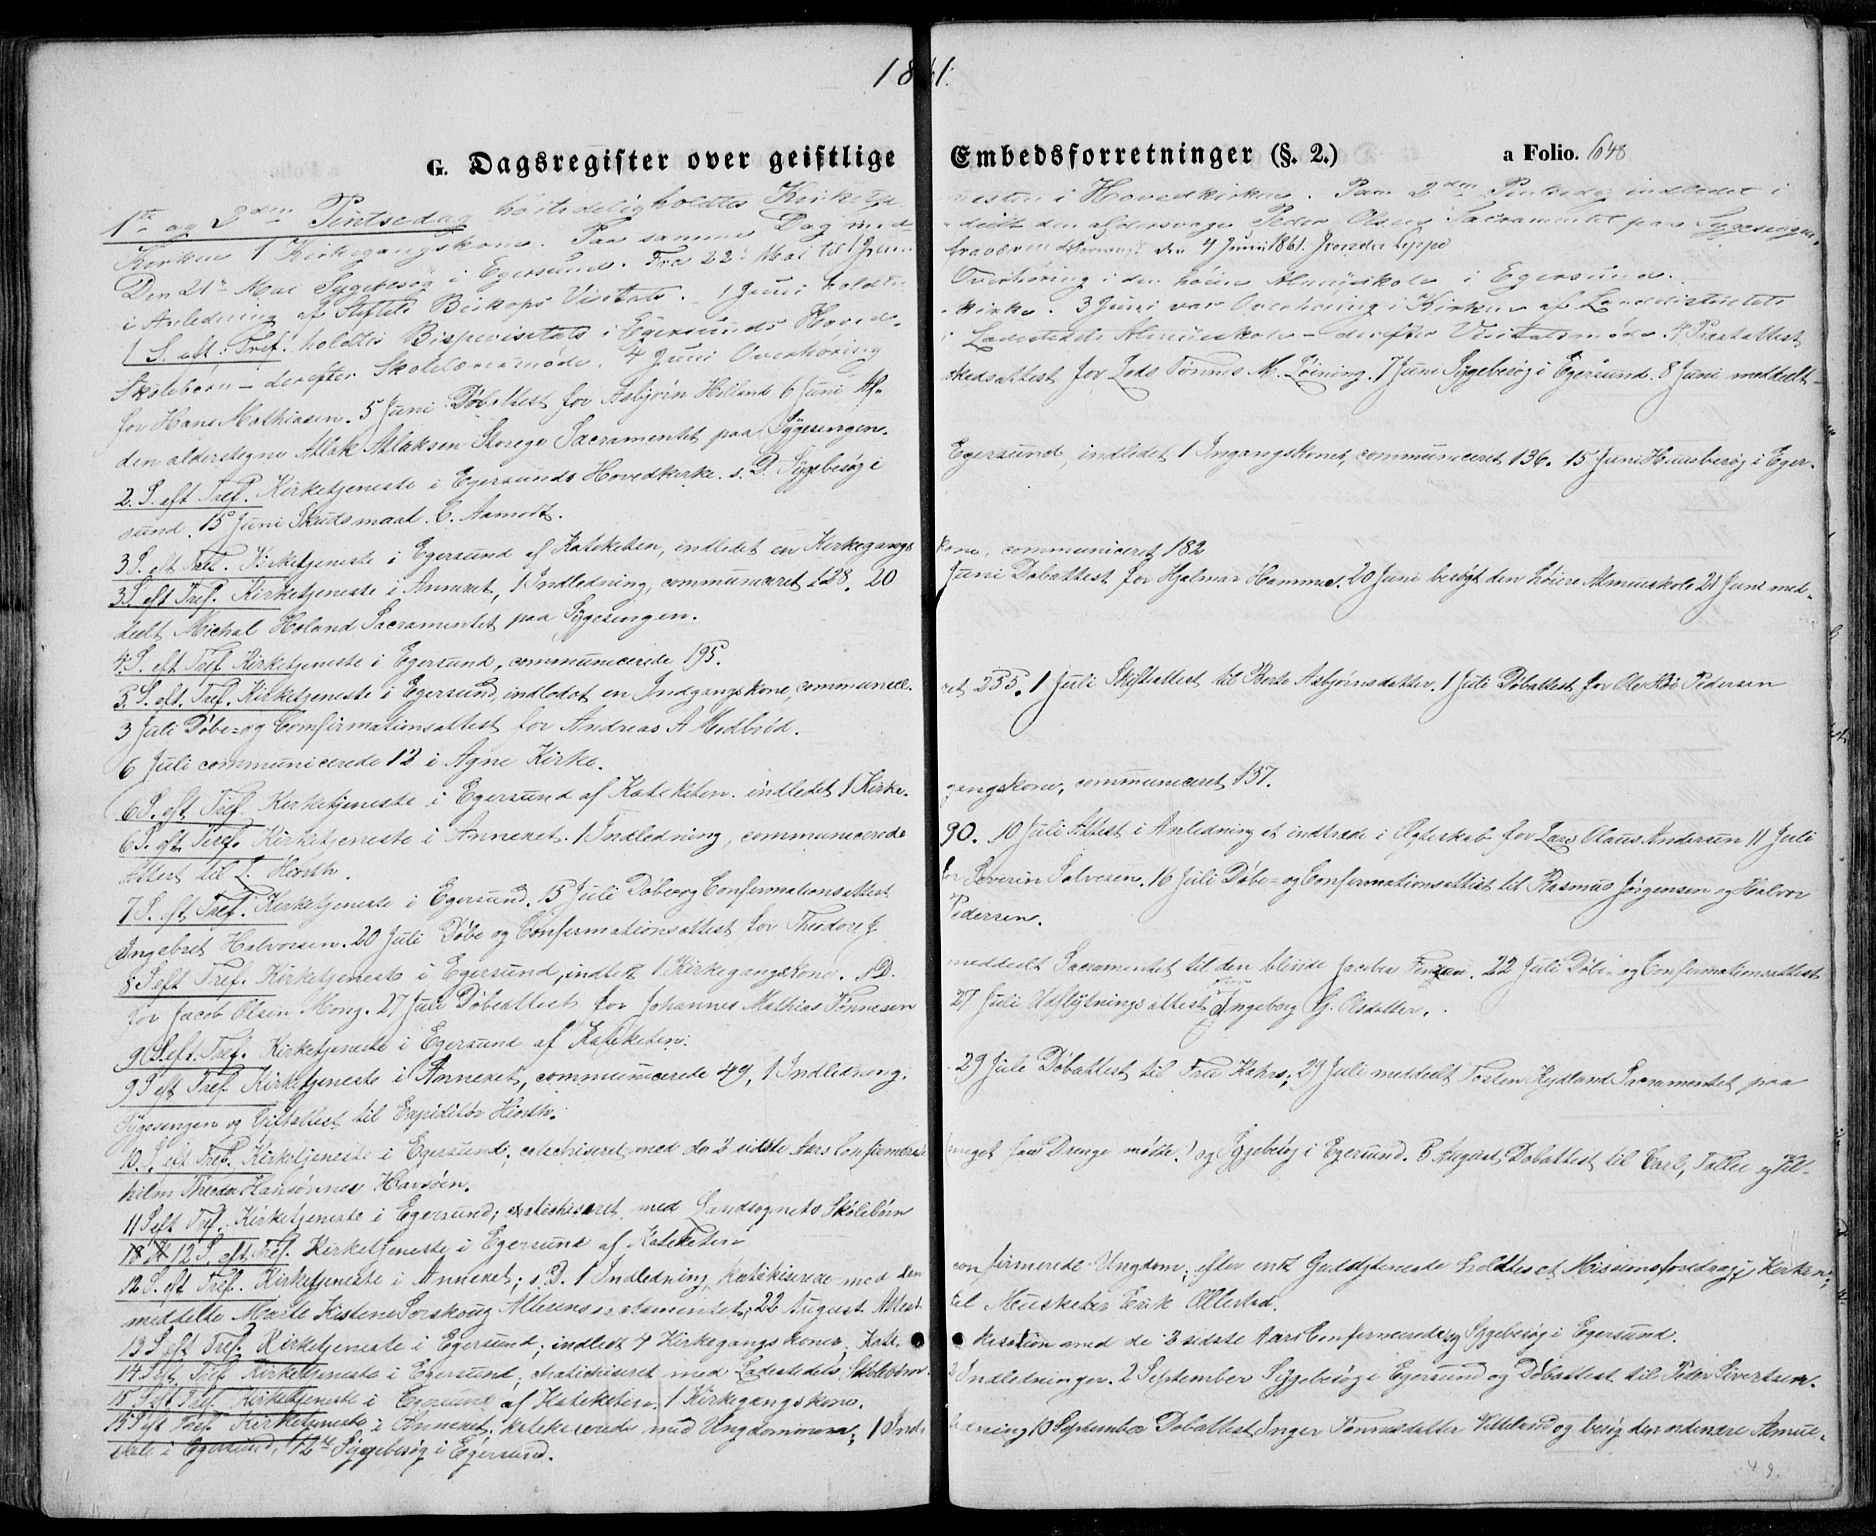 1861.
G. Dagsregister over geistlige Embedsforretninger (§. 2.) a Folio. 648
1ste og 2den Pintsedag høitideligholdtes Kirketje-
nesten i Hovedkirken. Paa 2den Pintsedag indledet i
Kirken 1 Kirkegangskone. Paa samme Dag med-
deelt den aldersvage Peder Olsen Sacramentet paa Sygesengen
Den 21de Mai Sygebesøg i Egersund. Fra 22de Mai til 1 Juni
fraværende den 4 Juni 1861.
i Anledning af Stiftets Biskops Visitats. 1 Juni holdt
Overhøring i den høiere Almueskole i Egersund.
1 S. eft: Tref. holdtes Bispevisitats i Egersunds Hoved-
kirke. 3 Juni var Overhøring i Kirken af Landdistrictets
Skolebørn – derefter Skolelærermøde. 4 Juni Overhøring
i Ladestedets Almueskole – derefter Visitatsmøde.
for Hans Mathiasen. 5 Juni Døbattest for Asbjørn Helland 6 Juni Af-
skedsattest for Lods Tønnes M. Løining. 7 Juni Sygebesøg i Egersund. 8 Juni meddeelt
den alderstegne Atlak Atlaksen Storege Sacramentet paa Sygesengen.
2. S. eft Tref. Kirketjeneste i Egersunds Hovedkirke. s. D. Sygebesøg i
Egersund, indledet 1 Ingangskone, communiceret 136. 15 Juni Huusbesøg i Eger-
sund. 15 Juni Skudsmaal C. Aamodt.
3 S. eft Tref. Kirketjeneste i Egersund af Kateketen, indledet en Kirkegangs
kone, communiceret 182
3 S. eft Tref. Kirketjeneste i Annexet, 1 Indledning, communiceret 128. 20
Juni Døbattest for Hjalmar Hammer. 20 Juni besøgt den høiere Almueskole 21 Juni med-
deelt Michal Holand Sacramentet paa Sygesengen.
4. S. eft Tref. Kirketjeneste i Egersund, communicerede 195.
5. S. eft. Tref. Kirketjeneste i Egersund, indledet en Indgangskone, communice-
ret 255. 1 Juli Skiftattest til Berte Asbjørnsdatter. 1 Juli Døbattest for Ole Pedersen
3 Juli Døbe- og Confirmationsattest for Andreas A Medbrød.
6 Juli communicerede 12 i Agne Kirke.
6 S. eft Tref. Kirketjeneste i Egersund af Kateketen. indledet 1 Kirke-
gangskone, communiceret 137.
6 S. eft Tref. Kirketjeneste i Annexet. 1 Indledning, communicerede
90. 10 Juli Attest i Anledning at indtræde i Ægteskab for Lars Olaus Andersen 11 Juli
Attest til L. Hiorth.
7 S. eft. Tref. Kirketjeneste i Egersund. 15 Juli Døbe og Confirmationsattest
for Severin Salvesen. 16 Juli Døbe- og Confirmationsattest til Rasmus Jørgensen og Halvor
Ingebret Halvorsen. 20 Juli Døbe og Confirmationsattest for Theodor J.
Pedersen.
8 S eft Tref. Kirketjeneste i Egersund, indledt 1 Kirkegangskone. s D.
meddeelt Sacramentet til den blinde Jacobea 22 Juli Døbe- og Confirmationsattest
for Jacob Olsen Mong. 27 Juli Døbeattest for Johannes Mathias Tønnesen
27 Juli Udflytningsattest for Ingeborg G. Olsdatter.
9 S. eft. Tref. Kirketjeneste i Egersund af Kateketen.
9 S eft Tref. Kirketjeneste i Annexet, communicerede 49, 1 Indledning.
29 Juli Døbattest til Fru Kahrs, 29 Juli meddeelt Tosten Rydland Sacramentet paa
Sygesengen og Vielattest til Expeditør Hiorth.
10. S. eft Tref. Kirketjeneste i Egersund; catechiseret med de 2 sidste Aars Confirmerede
(meget faa Drenge mødte.) og Sygebesøg i Egersund. 5 August Døbattest til Carl, Tollee og Vil-
helm Theodor Hansønner Hansøen.
11 S eft Tref. Kirketjeneste i Egersund; catechiseret med Landsognets Skolebørn
12 S. eft Tref. Kirketjeneste i Egersund af Kateketen
12 S. eft Tref. Kirketjeneste i Annexet; s. D. 1 Indledning, katekiserede med den
confirmerede Ungdom; efter endt Gudstjeneste holdtes et Missionsforedrag i Kirken;
meddelte Marte Kistene Sørskoug Alterens Sacramentet; 22 August Attest
til Musketer Erik Ollestad.
13 S eft Tref. Kirketjeneste i Egersund; indledt 4 Kirkegangskoner. Kate-
kisation med de 3 sidste Aars Confirmerede og Sygebesøg i Egersund.
14 S eft Tref. Kirketjeneste i Egersund, chatechiseret med Ladestedets Skolebørn
3 Indledninger. 2 September Sygebesøg i Egersund og Døbattest til Peder Sivertsen.
15 S eft Tref Kirketjeneste i Egersund af Kateketen. 1 Kirkegangskone.
15 S eft Tref. Kirketjeneste i Annexet, katekiserede med Ungdommen, 1 Ind-
ledning 10 September Døbattest Inger Tønnesdatter Vetteland og besøg den ordenære Almue-
skole i Egersund, 12te Sygebesøg i Egersund.